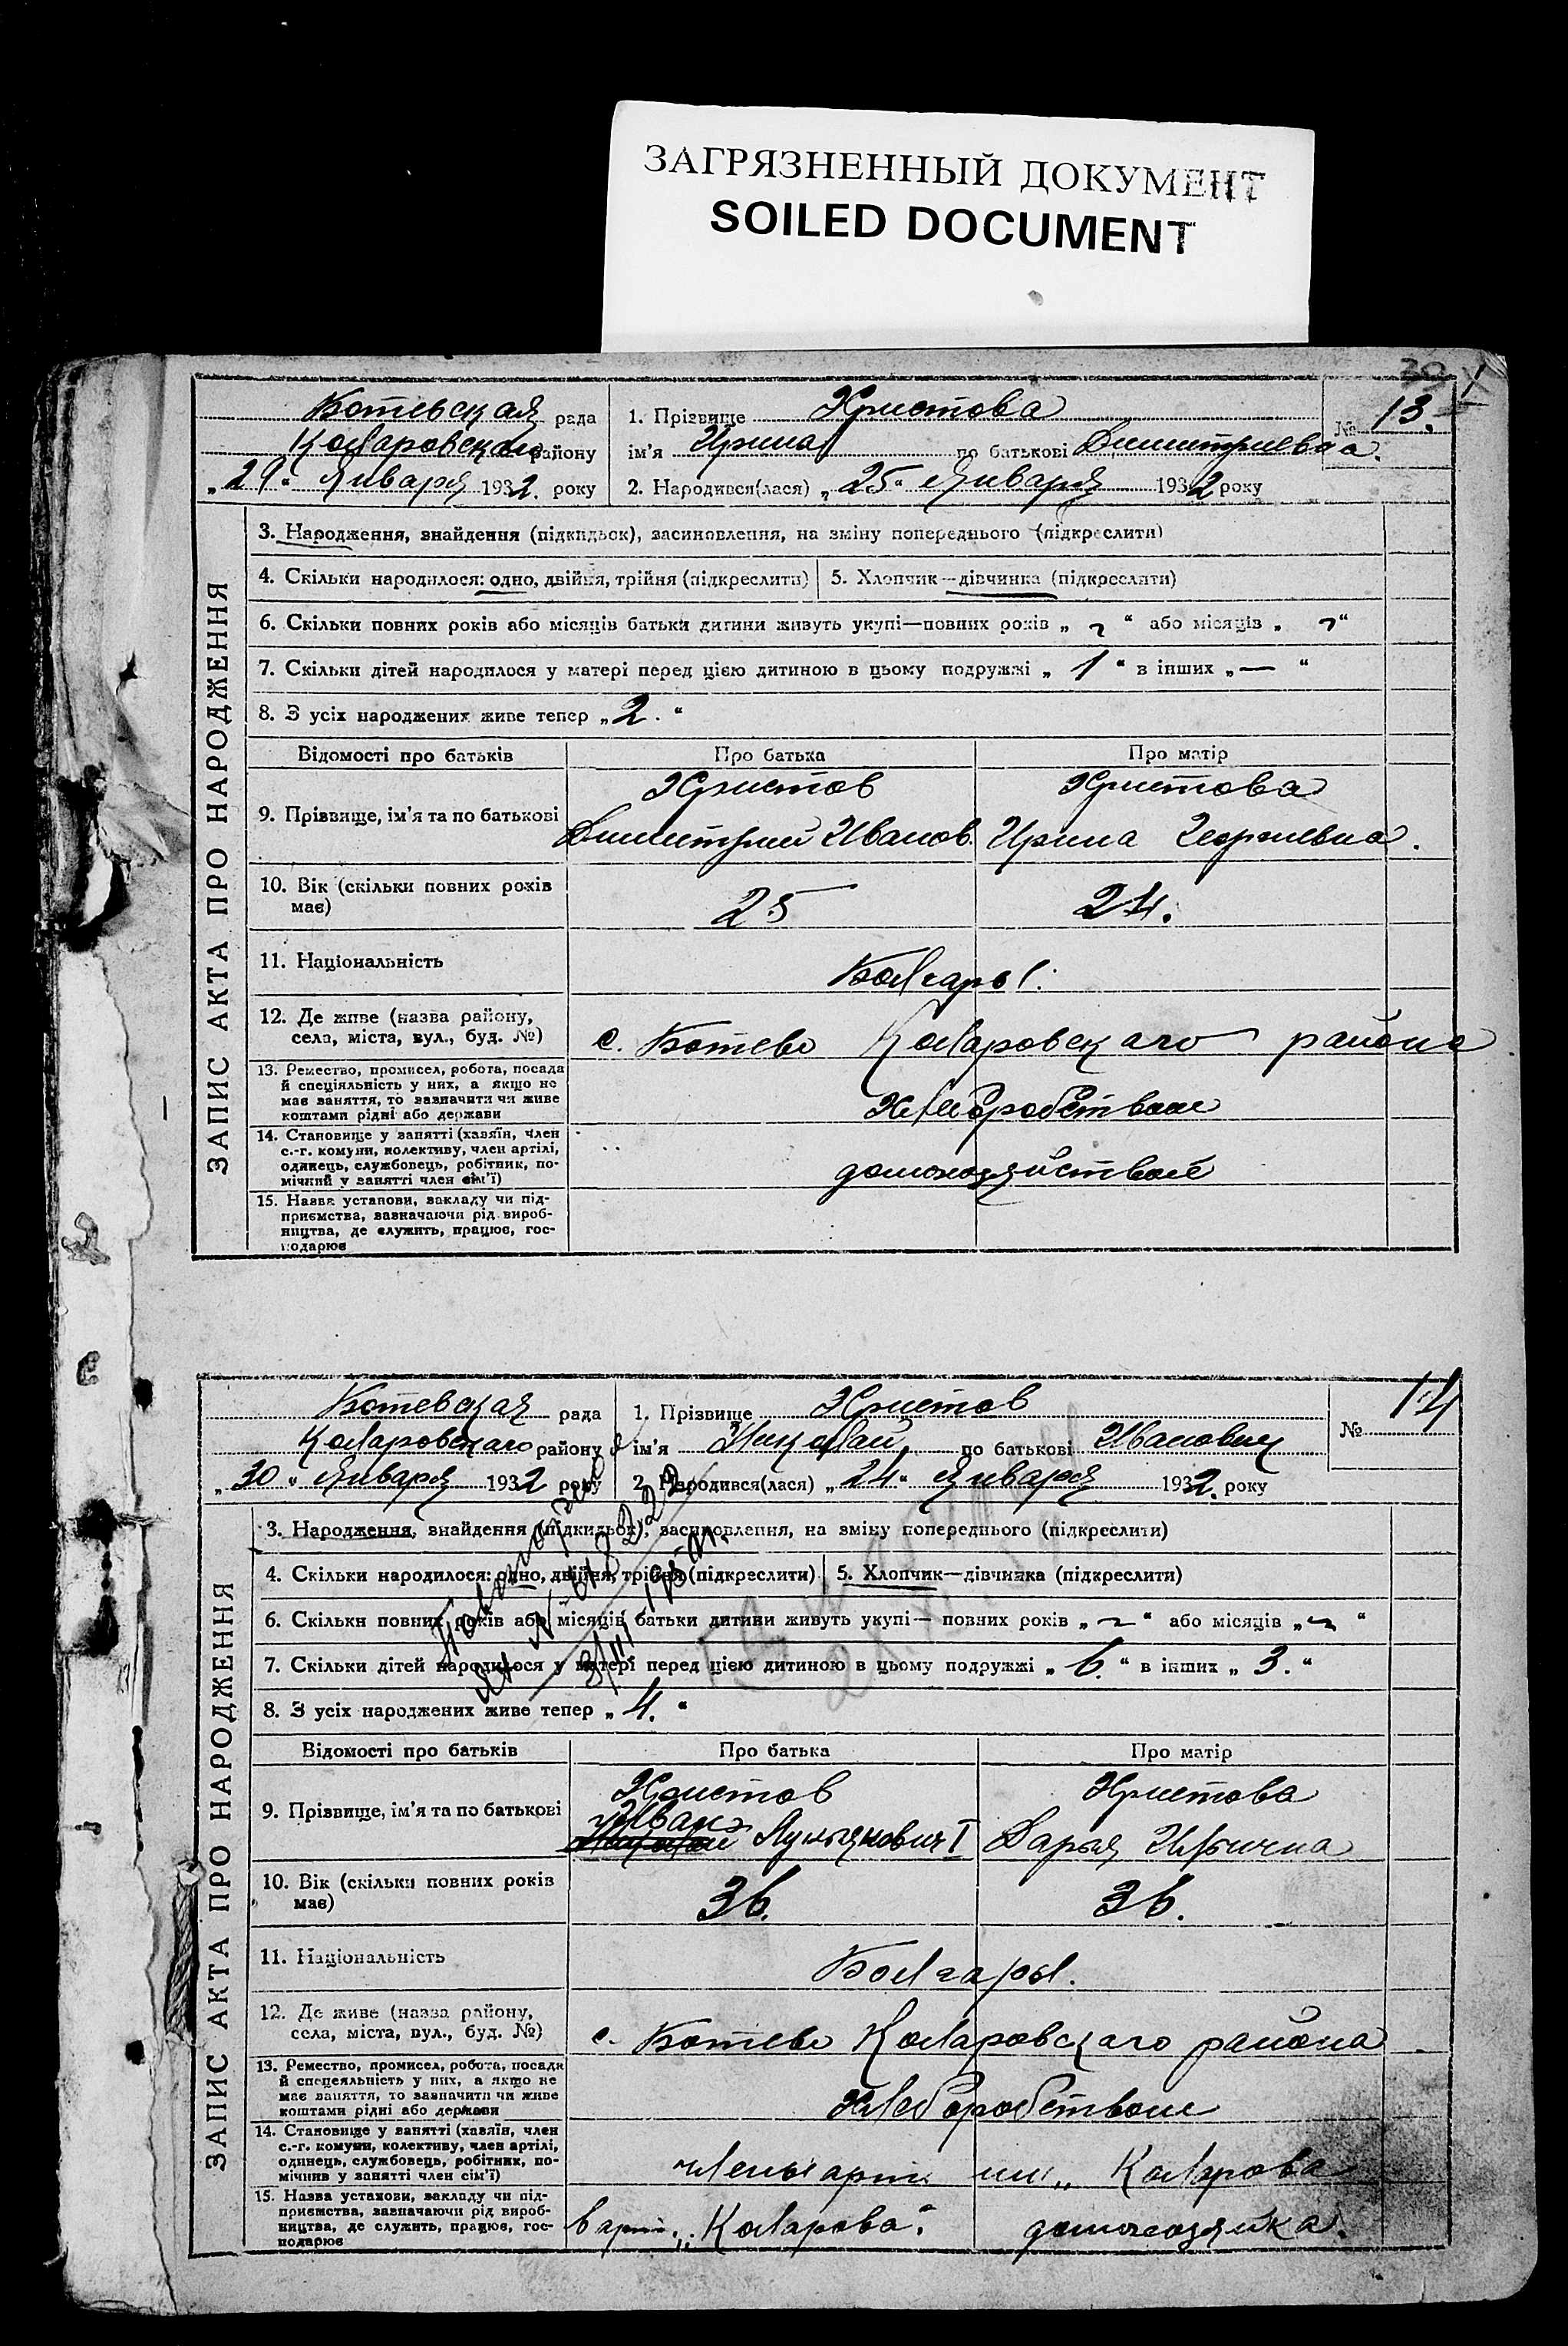 ЗАГРЯЗНЕННЫЙ ДОКУМЕНТ
SOILED DOCUMENT
30
№ 13.
Ботевская рада
Коларовского району
„29“ Января 1932. року
1. Прізвище Христова
ім'я Ирина по батькові Димитриевна.
2. Народився(лася) „25“ Января 1932 року
ЗАПИС АКТА ПРО НАРОДЖЕННЯ
3. Народження, знайдення (підкидьок), засиновлення, на зміну попереднього (підкреслити)
4. Скільки народилося: одно, двійня, трійня (підкреслити)
5. Хлопчик—дівчинка (підкреслити)
6. Скільки повних років або місяців батьки дитини живуть укупі—повних років „ “ або місяців „ “
7. Скільки дітей народилося у матері перед цією дитиною в цьому подружжі „1“ в інших „—“
8. З усіх народжених живе тепер „2.“
Відомості про батьків
Про батька
Про матір
9. Прізвище, ім'я та по батькові
Христов
Димитрий Иванов.
Христова
Ирина Георгиевна.
10. Вік (скільки повних років
має)
25
24.
11. Національність
Болгары.
12. Де живе (назва району,
села, міста, вул., буд. №)
с. Ботево Коларовского района
13. Ремество, промисел, робота, посада
й спеціяльність у них, а якщо не
має заняття, то зазначити чи живе
коштами рідні або держави
Хлеборобством
14. Становище у занятті (хазяїн, член
с.-г. комуни, колективу, член артілі,
одинець, службовець, робітник, по-
мічний у занятті член сім'ї)
домохозяйством
15. Назва установи, закладу чи під-
приємства, зазначаючи рід вироб-
ництва, де служить, працює, гос-
подарює
№ 14
Ботевская рада
Коларовского району
„30“ Января 1932 року
1. Прізвище Христов
ім'я Николай по батькові Иванович
2. Народився(лася) „24“ Января 1932. року
ЗАПИС АКТА ПРО НАРОДЖЕННЯ
3. Народження, знайдення (підкидьок), засиновлення, на зміну попереднього (підкреслити)
4. Скільки народилося: одно, двійня, трійня (підкреслити)
5. Хлопчик—дівчинка (підкреслити)
6. Скільки повних років або місяців батьки дитини живуть укупі — повних років „ “ або місяців „ “
7. Скільки дітей народилося у матері перед цією дитиною в цьому подружжі „6.“ в інших „3.“
8. З усіх народжених живе тепер „4.“
Відомості про батьків
Про батька
Про матір
9. Прізвище, ім'я та по батькові
Христов
Иван
Христова
Дарья Ильична
10. Вік (скільки повних років
має)
36.
36.
11. Національність
Болгары.
12. Де живе (назва району,
села, міста, вул., буд. №)
с. Ботево Коларовского района
13. Ремество, промисел, робота, посада
й спецеяльність у них, а якщо не
має заняття, то зазначити чи живе
коштами рідні або держави
Хлеборобством
14. Становище у занятті (хазяїн, член
с.-г. комуни, колективу, член артілі,
одинець, службовець, робітник, по-
мічнив у занятті член сім'ї)
члены арт. им „Коларова
15. Назва установи, закладу чи під-
приємства, зазначаючи рід вироб-
ництва, де служить, працює, гос-
подарює
в арт. „Коларова“.
домохозяйка.